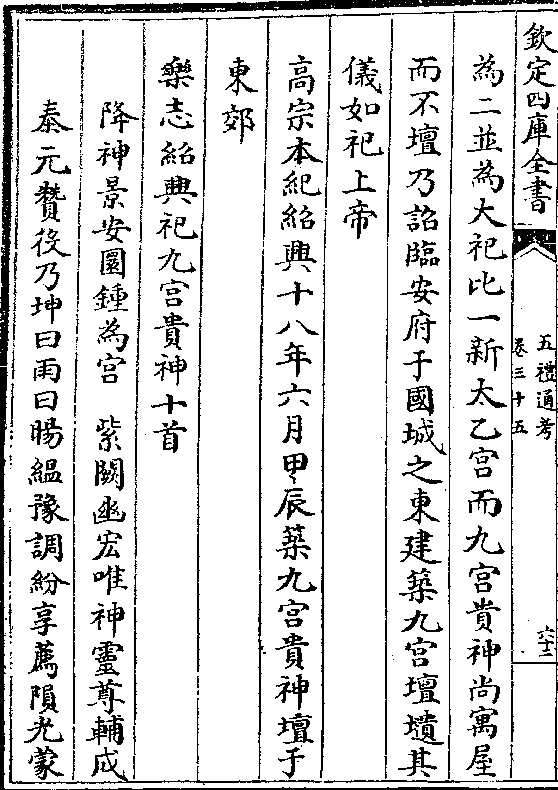 欽定四庫全書
五禮通考
卷三十五
為二並為大祀比一新太乙宮而九宮貴神尚寓屋
而不壇乃詔臨安府于國城之東建築九宮壇壝其
儀如祀上帝
高宗本紀紹興十八年六月甲辰築九宮貴神壇于
東郊
樂志紹興祀九宮貴神十首
降神景安圜鍾為宮　紫闕幽宏唯神靈尊輔成
泰元贊役乃坤日雨日暘縕豫調紛享薦隕光蒙